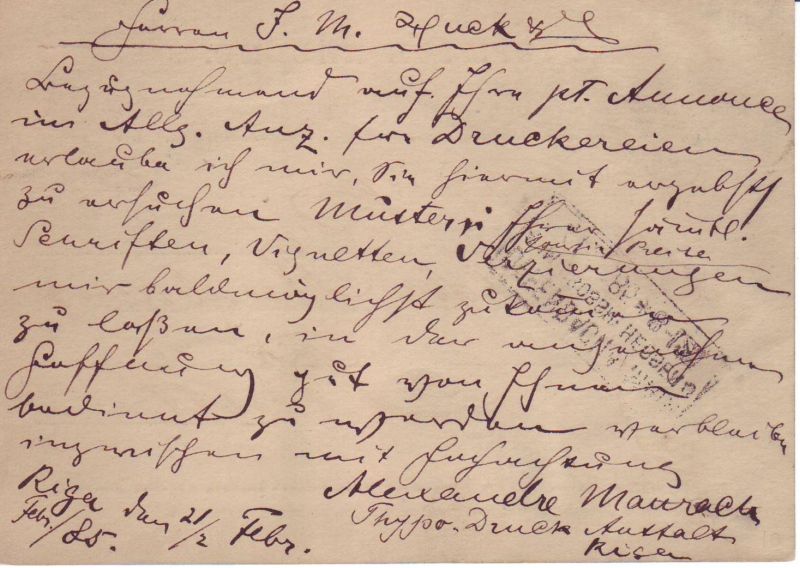 Herren J. M. Huck & 
Bezugnehmend auf Ihre pt. Annonce
im Allg. Anz. für Druckereien
erlaube ich mir, Sie hiermit ergebst
zu ersuchen Muster Ihrer sämtl.
Schriften, Vignetten, Verzierungen
Preise
mir baldmöglichst zukommen
zu laßen, in der angenehmen
Hoffnung gut von Ihnen
bedient zu werden verbleibe
inzwischen mit Hochachtung
Alexandre Maurach
Thypo-Druck Anstalt
Riga
Riga den 21/2 Febr.
Febr./85.